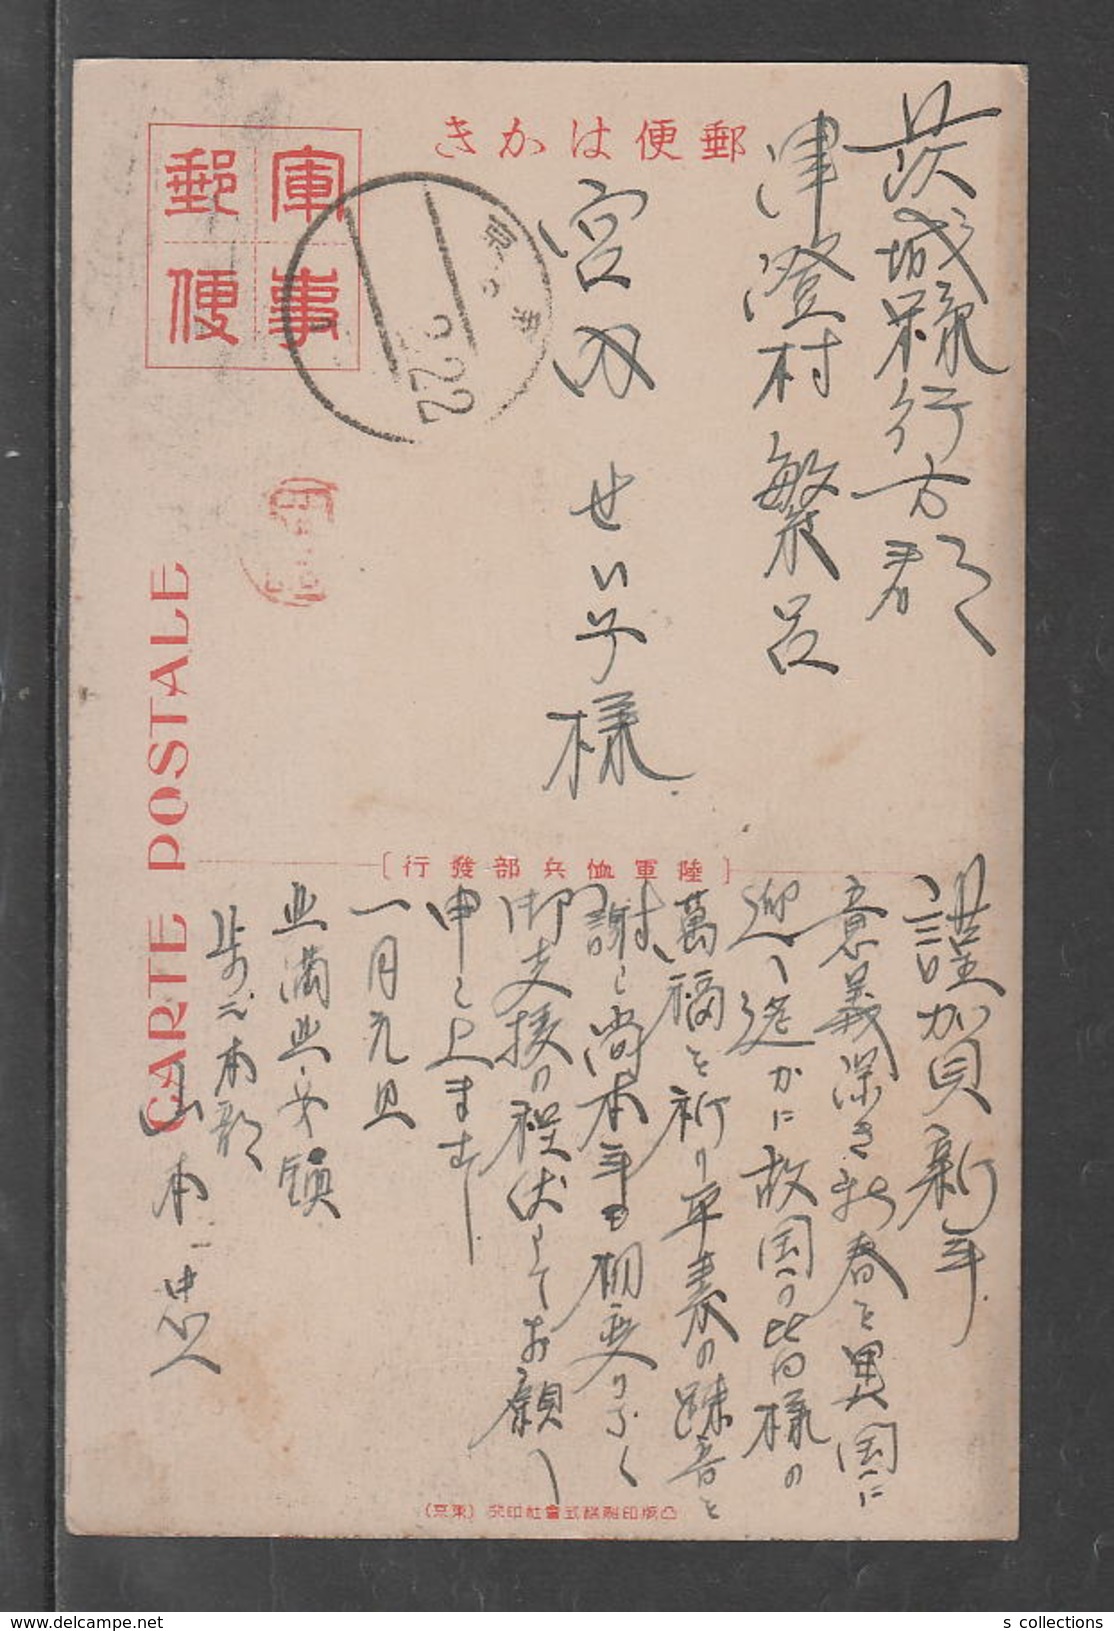 郵便はかき
軍事
郵便
茨城縣行方郡
津澄村繁昌
宮内せい子様
2.22
CARTE POSTALE
[陸軍恤兵部發行]
謹賀新年
意義深き新春を異国に
迎へ遙かに故国の皆様の
萬福を祈り平素の疎音を
謝し尚本年も相変りなく
御支援の程伏してお願ひ
申し上ます
一月元旦
北満北安鎮
本部
山本忠
凸版印刷株式會社印行 (東京)
s collections